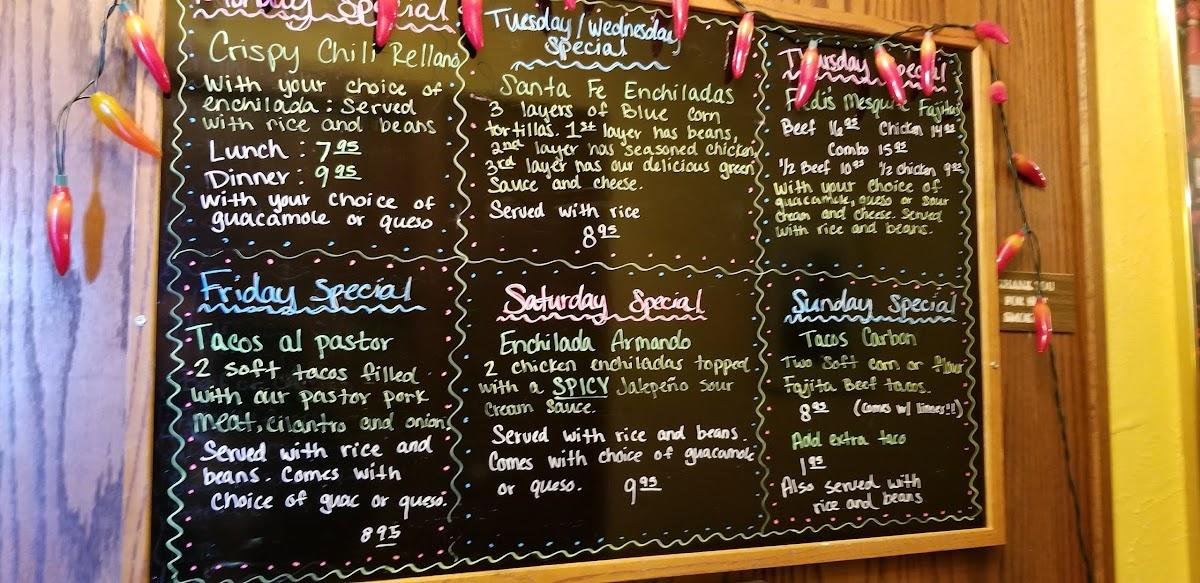 Monday Special
Crispy Chili Rellano
With your choice of
enchilada: Served
with rice and beans
Lunch: 7.95
Dinner: 9.95
With your choice of
guacamole or queso
Tuesday/Wednesday
Special
Santa Fe Enchiladas
3 layers of Blue corn
tortillas. 1st layer has beans,
2nd layer has seasoned chicken,
3rd layer has our delicious green
Sauce and cheese.
Served with rice
8.95
Thursday Special
Mesquite Fajitas
Beef 16.95 Chicken 14.95
Combo 15.95
1/2 Beef 10.95 1/2 chicken 9.95
With your choice of
guacamole, queso or sour
cream and cheese. Served
with rice and beans.
Friday Special
Tacos al pastor
2 soft tacos filled
with our pastor pork
meat, cilantro and onions
Served with rice and
beans. Comes with
choice of guac or queso.
8.95
Saturday Special
Enchilada Armando
2 chicken enchiladas topped
with a SPICY Jalepeño sour
Cream Sauce.
Served with rice and beans.
Comes with choice of guacamole
or queso. 9.95
Sunday Special
Tacos Carbon
Two Soft corn or flour
Fajita Beef tacos.
8.95 (Comes w/ limes!!)
Add extra taco
1.95
Also served with
rice and beans
THANK YOU
FOR